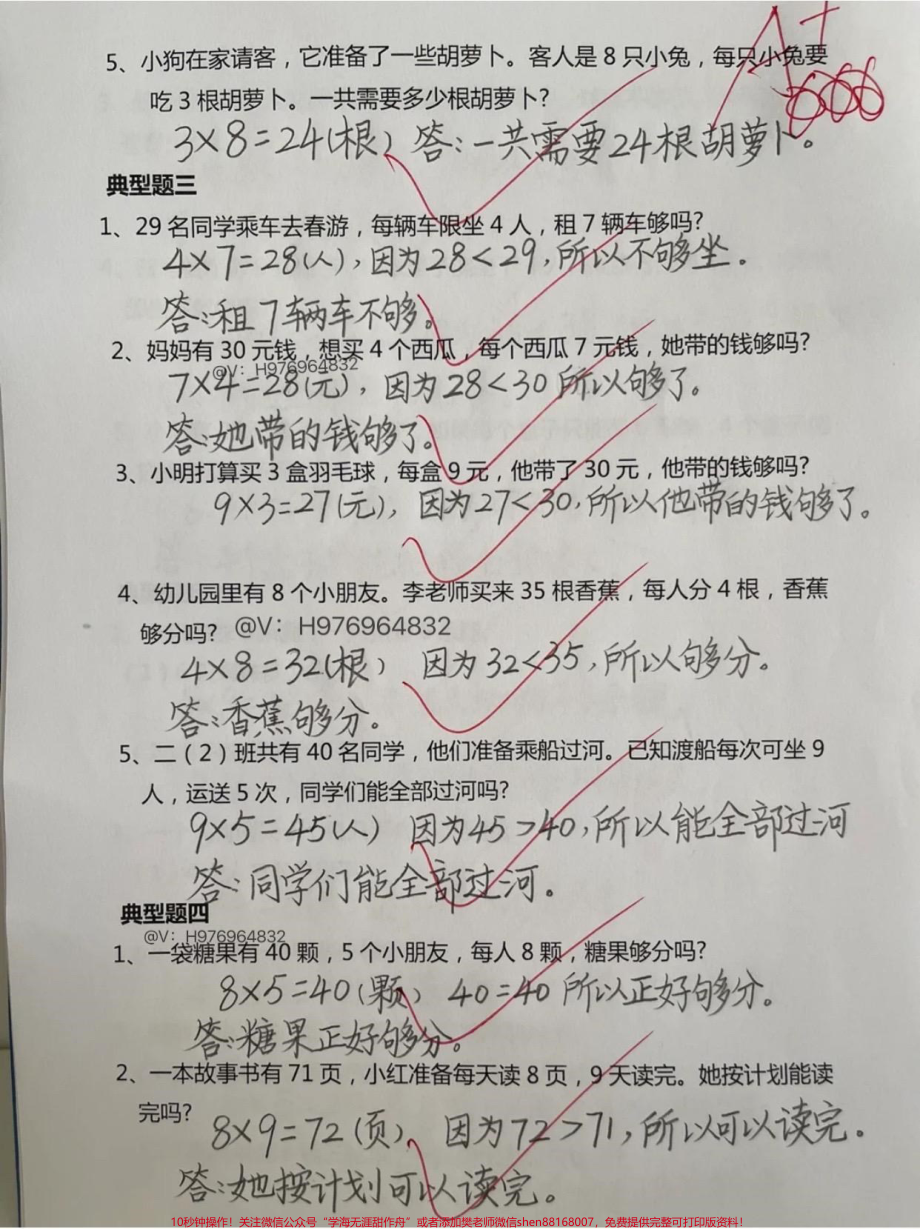 A+
666
5、小狗在家请客，它准备了一些胡萝卜。客人是 8 只小兔，每只小兔要
吃 3 根胡萝卜。一共需要多少根胡萝卜?
3×8=24(根) 答:一共需要24根胡萝卜。
典型题三
1、29 名同学乘车去春游，每辆车限坐 4 人，租 7 辆车够吗?
4×7=28(人),因为28<29,所以不够坐.
答:租7辆车不够。
2、妈妈有 30 元钱，想买 4 个西瓜，每个西瓜 7 元钱，她带的钱够吗?
@V：H976964832
7×4=28(元),因为28<30所以够了。
答:她带的钱够了。
3、小明打算买 3 盒羽毛球，每盒 9 元，他带了 30 元，他带的钱够吗?
9×3=27(元),因为27<30,所以他带的钱够了。
4、幼儿园里有 8 个小朋友。李老师买来 35 根香蕉，每人分 4 根，香蕉
够分吗? @V：H976964832
4×8=32(根) 因为32<35,所以够分。
答:香蕉够分。
5、二（2）班共有 40 名同学，他们准备乘船过河。已知渡船每次可坐 9
人，运送 5 次，同学们能全部过河吗?
9×5=45(人) 因为45>40,所以能全部过河
答:同学们能全部过河。
典型题四
@V：H976964832
1、一袋糖果有 40 颗，5 个小朋友，每人 8 颗，糖果够分吗?
8×5=40(颗) 40=40 所以正好够分。
答:糖果正好够分。
2、一本故事书有 71 页，小红准备每天读 8 页，9 天读完。她按计划能读
完吗?
8×9=72(页) 因为72>71,所以可以读完。
答:她按计划可以读完。
10秒钟操作！关注微信公众号“学海无涯甜作舟”或者添加樊老师微信shen88168007，免费提供完整可打印版资料！